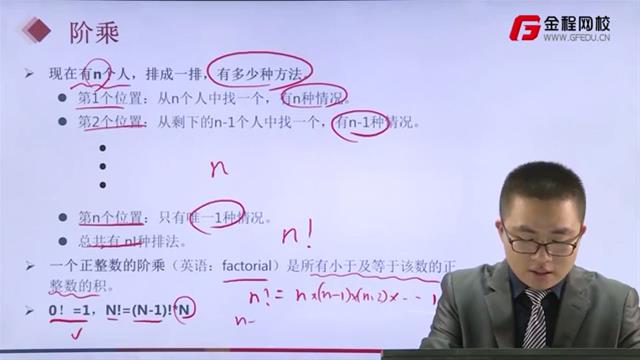 阶乘
金程网校
WWW.GFEDU.CN
现在有n个人，排成一排，有多少种方法。
第1个位置：从n个人中找一个，有n种情况。
第2个位置：从剩下的n-1个人中找一个，有n-1种情况。
n
第n个位置：只有唯一1种情况。
总共有 n!种排法。
n!
一个正整数的阶乘（英语：factorial）是所有小于及等于该数的正
整数的积。
n! = n×(n-1)×(n-2)×--- 1
0！=1，N!=(N-1)!*N
n-